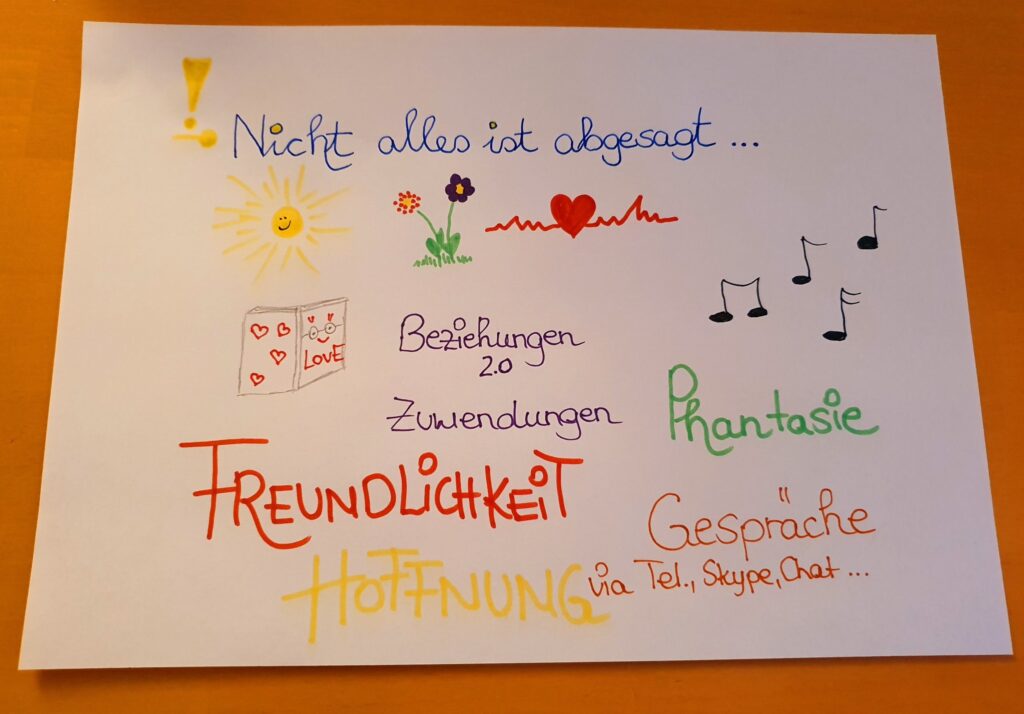 ! Nicht alles ist abgesagt ...
LOVE
Beziehungen
2.0
Zuwendungen
Phantasie
FREUNDLiCHKEiT
Gespräche
via Tel., Skype, Chat ...
HOFFNUNG